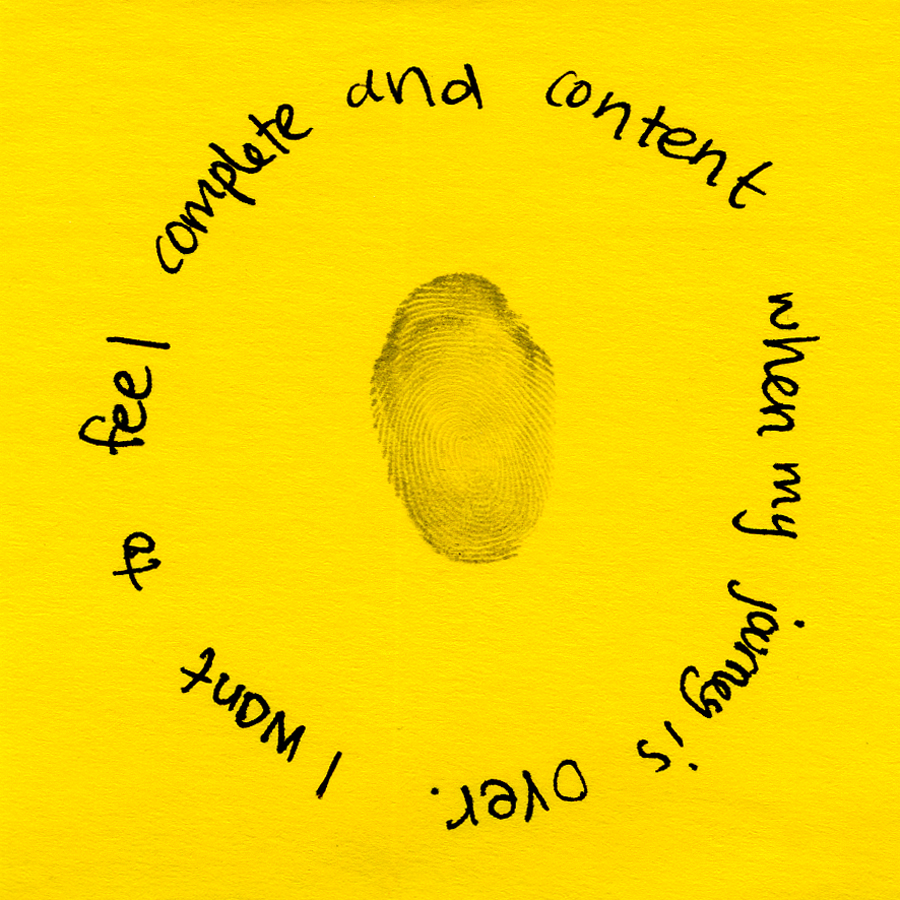 I want to feel complete and content when my journey is over.